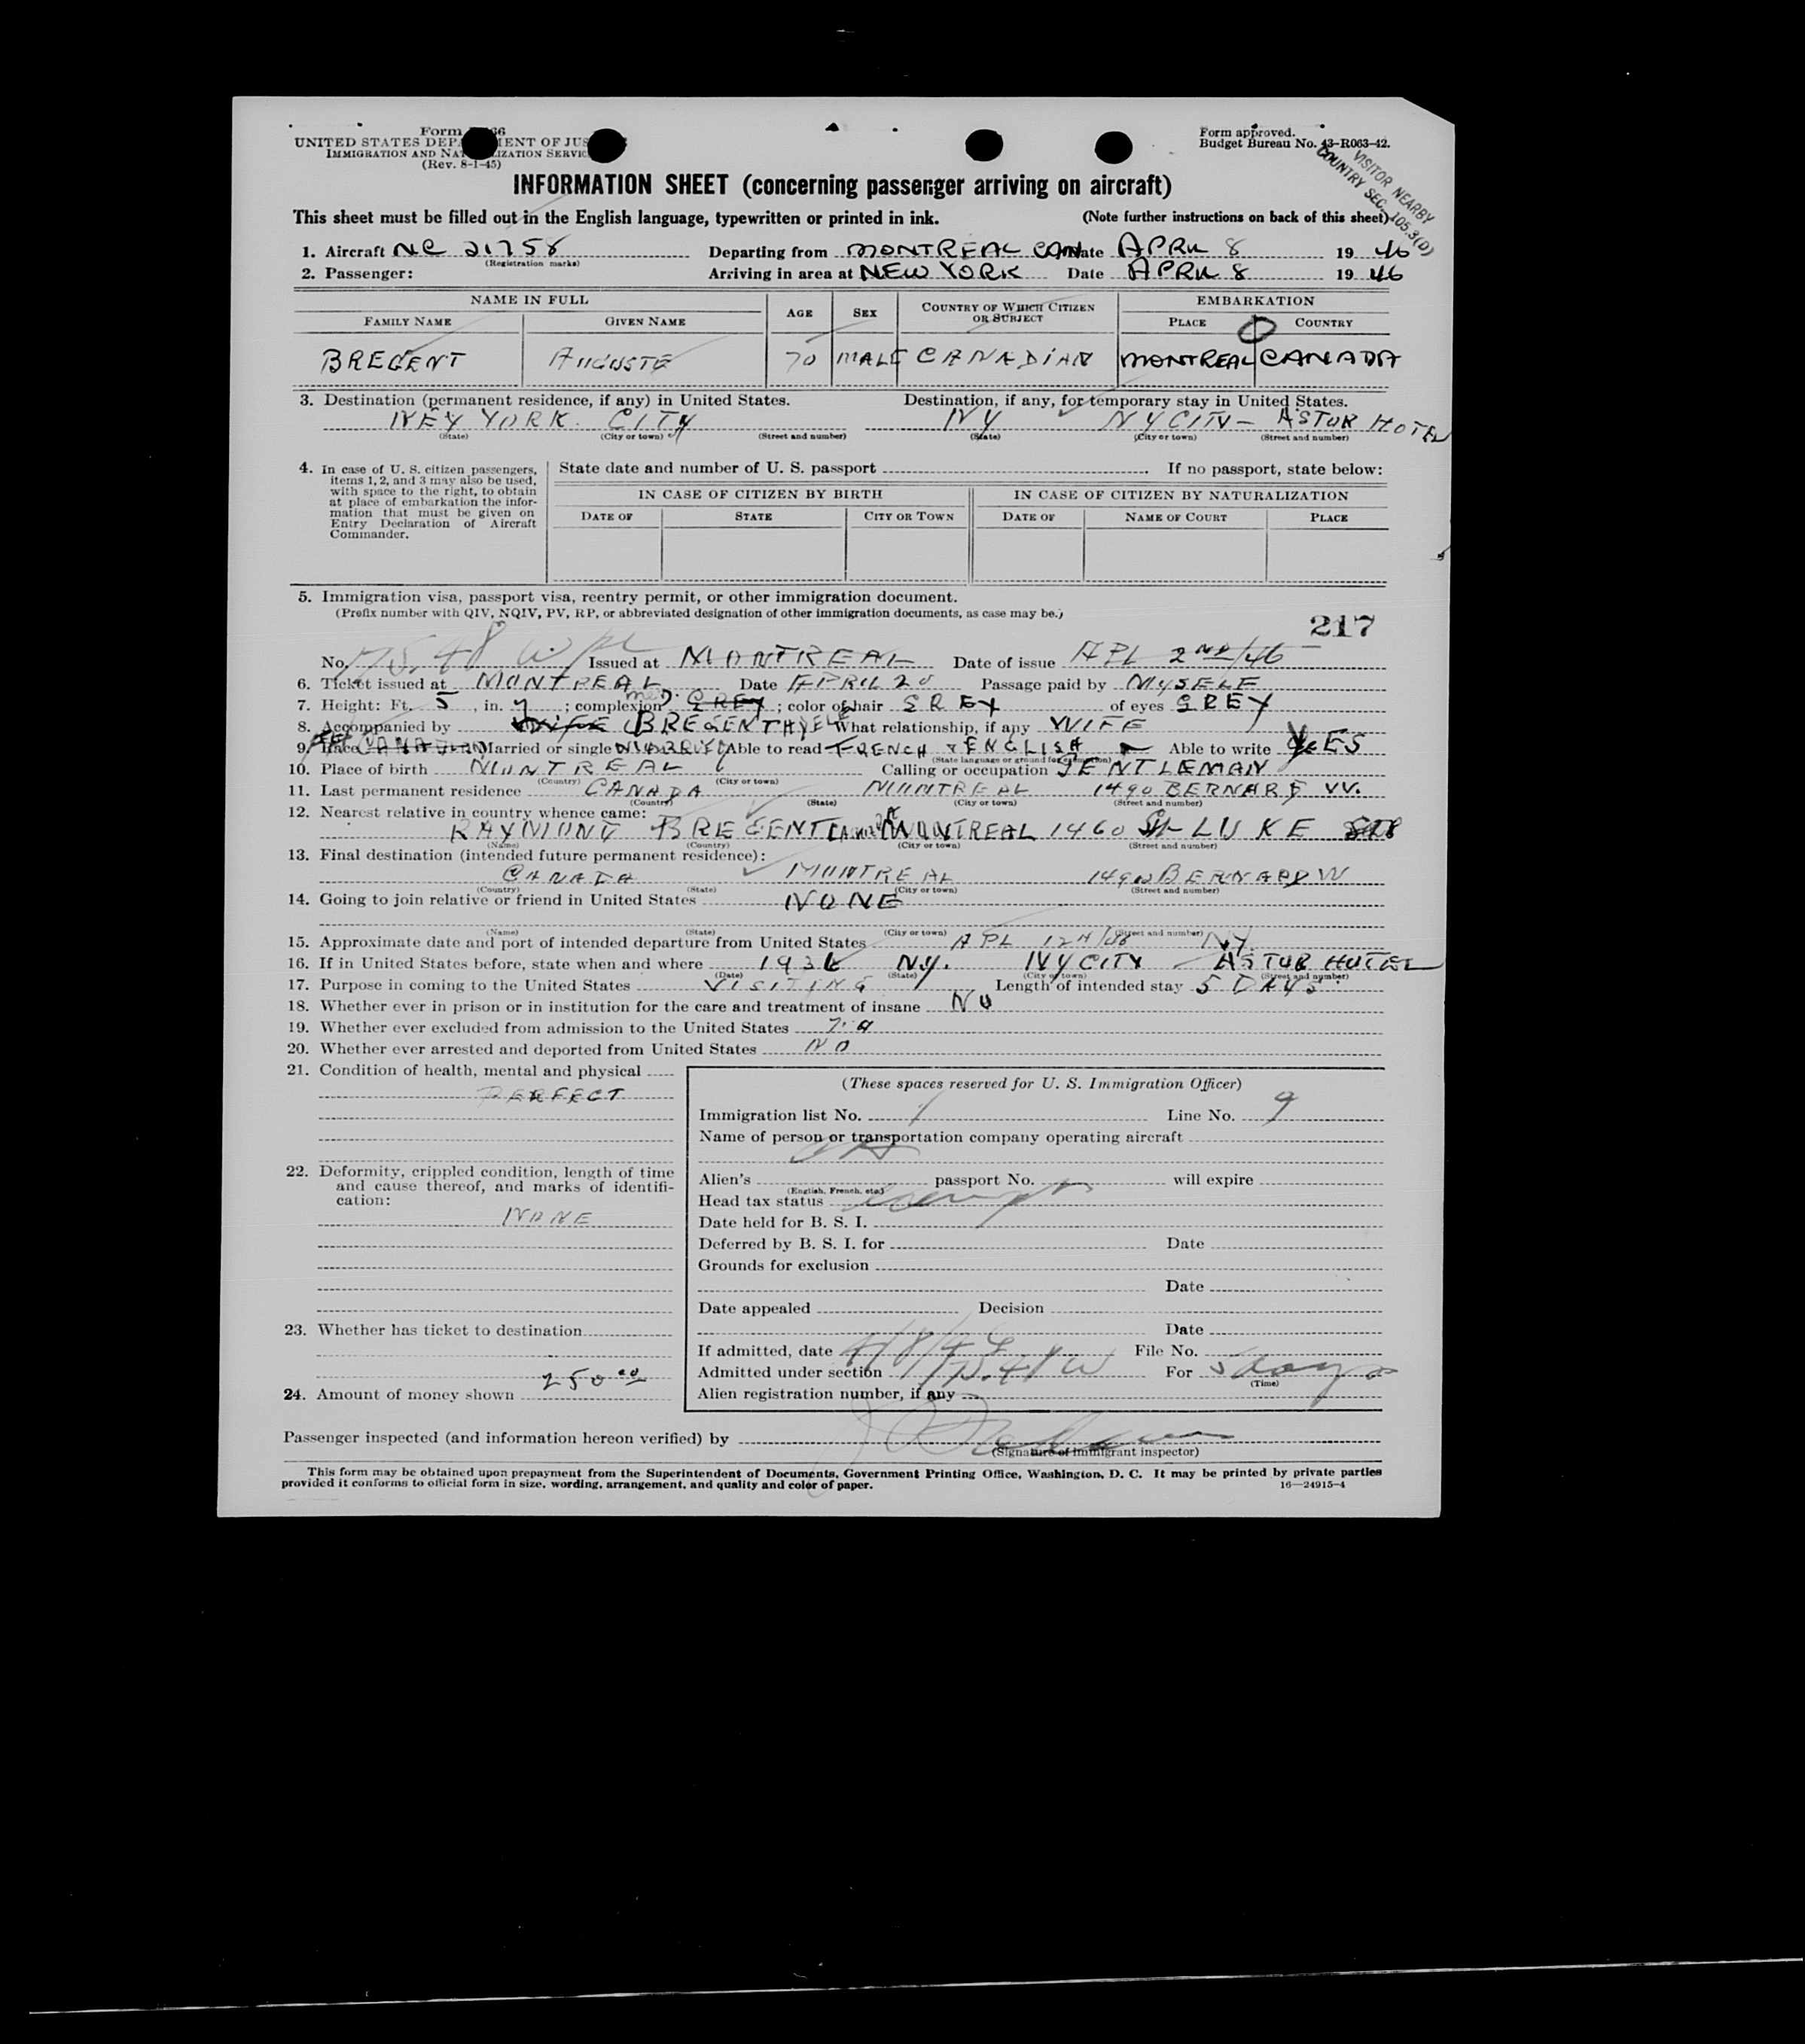 Form 66
UNITED STATES DEPA MENT OF JUS
IMMIGRATION AND NAT LIZATION SERVIC
(Rev. 8-1-45)
Form approved.
Budget Bureau No. 43-R063-42.
VISITOR NEARBY
COUNTRY SEC. 105.3(D)
INFORMATION SHEET (concerning passenger arriving on aircraft)
This sheet must be filled out in the English language, typewritten or printed in ink. (Note further instructions on back of this sheet)
1. Aircraft NC 21758 Departing from MONTREAL CAN Date APRIL 8 1946
(Registration marks)
2. Passenger: Arriving in area at NEW YORK Date APRIL 8 1946
NAME IN FULL AGE SEX COUNTRY OF WHICH CITIZEN OR SUBJECT EMBARKATION
FAMILY NAME GIVEN NAME PLACE COUNTRY
BREGENT AUGUSTE 70 MALE CANADIAN MONTREAL CANADA
3. Destination (permanent residence, if any) in United States. Destination, if any, for temporary stay in United States.
NEY YORK CITY NY NY CITY - ASTOR HOTEL
(State) (City or town) (Street and number) (State) (City or town) (Street and number)
4. In case of U. S. citizen passengers, items 1, 2, and 3 may also be used, with space to the right, to obtain at place of embarkation the information that must be given on Entry Declaration of Aircraft Commander.
State date and number of U. S. passport If no passport, state below:
IN CASE OF CITIZEN BY BIRTH IN CASE OF CITIZEN BY NATURALIZATION
DATE OF STATE CITY OR TOWN DATE OF NAME OF COURT PLACE
5. Immigration visa, passport visa, reentry permit, or other immigration document.
(Prefix number with QIV, NQIV, PV, RP, or abbreviated designation of other immigration documents, as case may be.)
217
No. 175.48 W Issued at MONTREAL Date of issue APL 2ND/46
6. Ticket issued at MONTREAL Date APRIL 20 Passage paid by MYSELF
7. Height: Ft. 5, in. 7; complexion MED. GREY; color of hair GREY of eyes GREY
8. Accompanied by WIFE BREGENT What relationship, if any WIFE
9. Race CANADIAN Married or single MARRIED Able to read FRENCH & ENGLISH Able to write YES
(State language or ground for exemption)
10. Place of birth MONTREAL Calling or occupation GENTLEMAN
(Country) (City or town)
11. Last permanent residence CANADA MONTREAL 1490 BERNARD W.
(Country) (State) (City or town) (Street and number)
12. Nearest relative in country whence came:
RAYMOND BREGENT CANADA MONTREAL 1460 St LUKE
(Name) (Country) (City or town) (Street and number)
13. Final destination (intended future permanent residence):
CANADA MONTREAL 1490 BERNARD W
(Country) (State) (City or town) (Street and number)
14. Going to join relative or friend in United States NONE
(Name) (State) (City or town) (Street and number)
15. Approximate date and port of intended departure from United States APL 12 NY.
16. If in United States before, state when and where NY. NY CITY - ASTOR HOTEL
(Date) (State) (City or town) (Street and number)
17. Purpose in coming to the United States VISITING Length of intended stay 5 DAYS
18. Whether ever in prison or in institution for the care and treatment of insane NO
19. Whether ever excluded from admission to the United States no
20. Whether ever arrested and deported from United States NO
21. Condition of health, mental and physical
PERFECT
22. Deformity, crippled condition, length of time and cause thereof, and marks of identification:
NONE
23. Whether has ticket to destination
24. Amount of money shown 250.00
(These spaces reserved for U. S. Immigration Officer)
Immigration list No. 1 Line No. 9
Name of person or transportation company operating aircraft
Alien's passport No. will expire
(English, French, etc.)
Head tax status exempt
Date held for B. S. I.
Deferred by B. S. I. for Date
Grounds for exclusion
Date
Date appealed Decision
Date
If admitted, date 4/8/46 File No.
Admitted under section 175.48 W For 5 days
(Time)
Alien registration number, if any
Passenger inspected (and information hereon verified) by
(Signature of immigrant inspector)
This form may be obtained upon prepayment from the Superintendent of Documents, Government Printing Office, Washington, D. C. It may be printed by private parties
provided it conforms to official form in size, wording, arrangement, and quality and color of paper. 16—24915-4